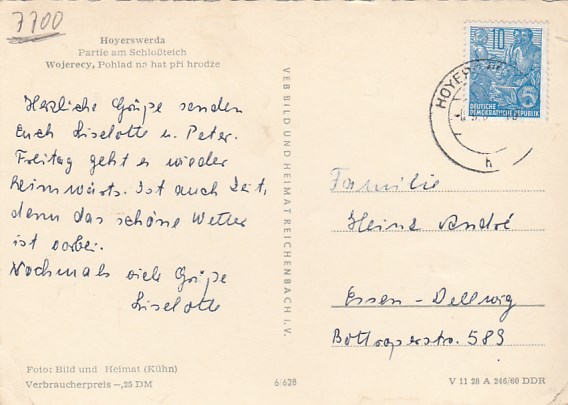 7700
Hoyerswerda
Partie am Schloßteich
Wojerecy, Pohlad na hat při hrodźe
Herzliche Grüße senden
Euch Liselotte u. Peter.
Freitag geht es wieder
heimwärts. Ist auch Zeit,
denn das schöne Wetter
ist vorbei.
Nochmals viele Grüße
Liselotte
Foto: Bild und Heimat (Kühn)
Verbraucherpreis -,25 DM
VEB BILD UND HEIMAT REICHENBACH i. V.
6/628
10
5
DEUTSCHE
DEMOKRATISCHE REPUBLIK
HOYERS
h
Familie
Heinz André
Essen-Dellwig
Bottroperstr. 589
V 11 28 A 246/60 DDR